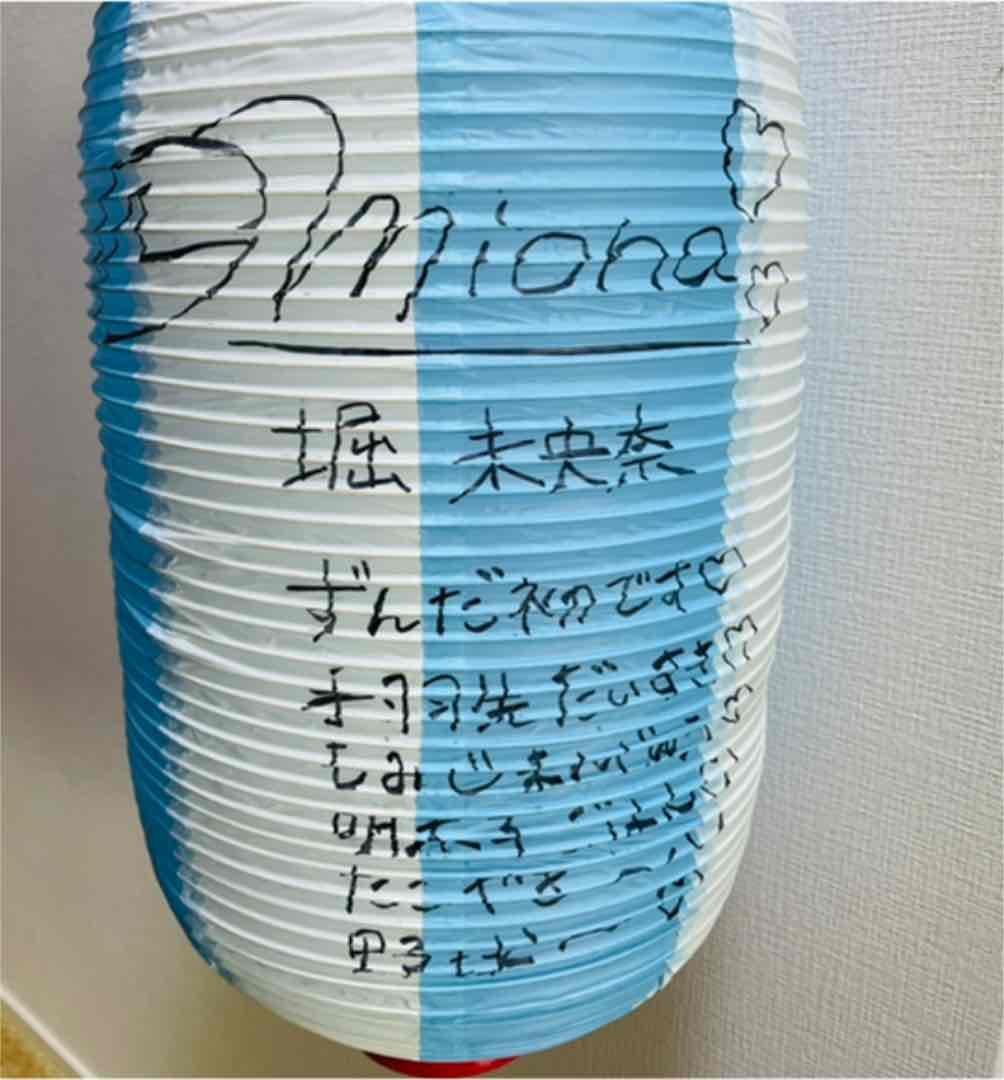 miona
堀 未央奈
ずんだ初です♡
手羽先だいすき♡
もみじまんじゅう
明太子ごはん
たこやき〜
野球〜